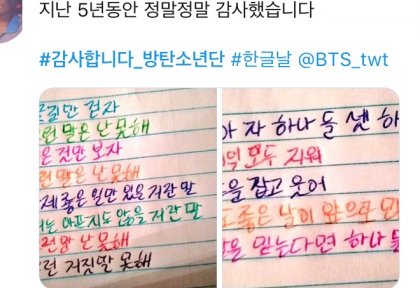 지난 5년동안 정말정말 감사했습니다
#감사합니다_방탄소년단 #한글날 @BTS_twt
길만 걷자
런 말은 난 못해
은 것만 보자
런 말은 난 못해
제 좋은 일만 있을 거란 말
는 아프지도 않을 거란 말
런 말 난 못해
런 거짓말 못해
자 하나 둘 셋 하
억 모두 지워
을 잡고 웃어
도 좋은 날이 앞으로
을 믿는다면 하나 둘